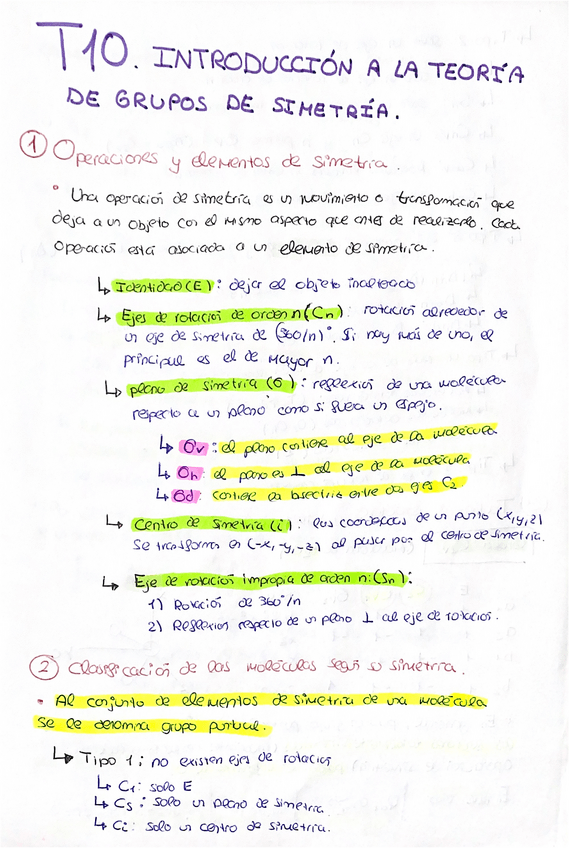 T10. INTRODUCCIÓN A LA TEORÍA
DE GRUPOS DE SIMETRÍA.
① Operaciones y elementos de simetría.
• Una operación de simetría es un movimiento o transformación que
deja a un objeto con el mismo aspecto que antes de realizarlo. Cada
operación está asociada a un elemento de simetría.
↳ Identidad (E): dejar el objeto inalterado
↳ Ejes de rotación de orden n (Cn): rotación alrededor de
un eje de simetría de (360/n)°. Si hay más de uno, el
principal es el de mayor n.
↳ plano de simetría (σ): reflexión de una molécula
respecto a un plano como si fuera un espejo.
↳ σv: el plano contiene al eje de la molécula
↳ σh: el plano es ⊥ al eje de la molécula
↳ σd: contiene la bisectriz entre dos ejes C₂
↳ Centro de simetría (i): las coordenadas de un punto (x,y,z)
se transforman en (-x,-y,-z) al pasar por el centro de simetría.
↳ Eje de rotación impropia de orden n: (Sn):
1) Rotación de 360°/n
2) Reflexión respecto de un plano ⊥ al eje de rotación.
② Clasificación de las moléculas según su simetría.
• Al conjunto de elementos de simetría de una molécula
se le denomina grupo puntual.
↳ Tipo 1: no existen ejes de rotación
↳ C₁: solo E
↳ Cs: solo un plano de simetría
↳ Ci: solo un centro de simetría.